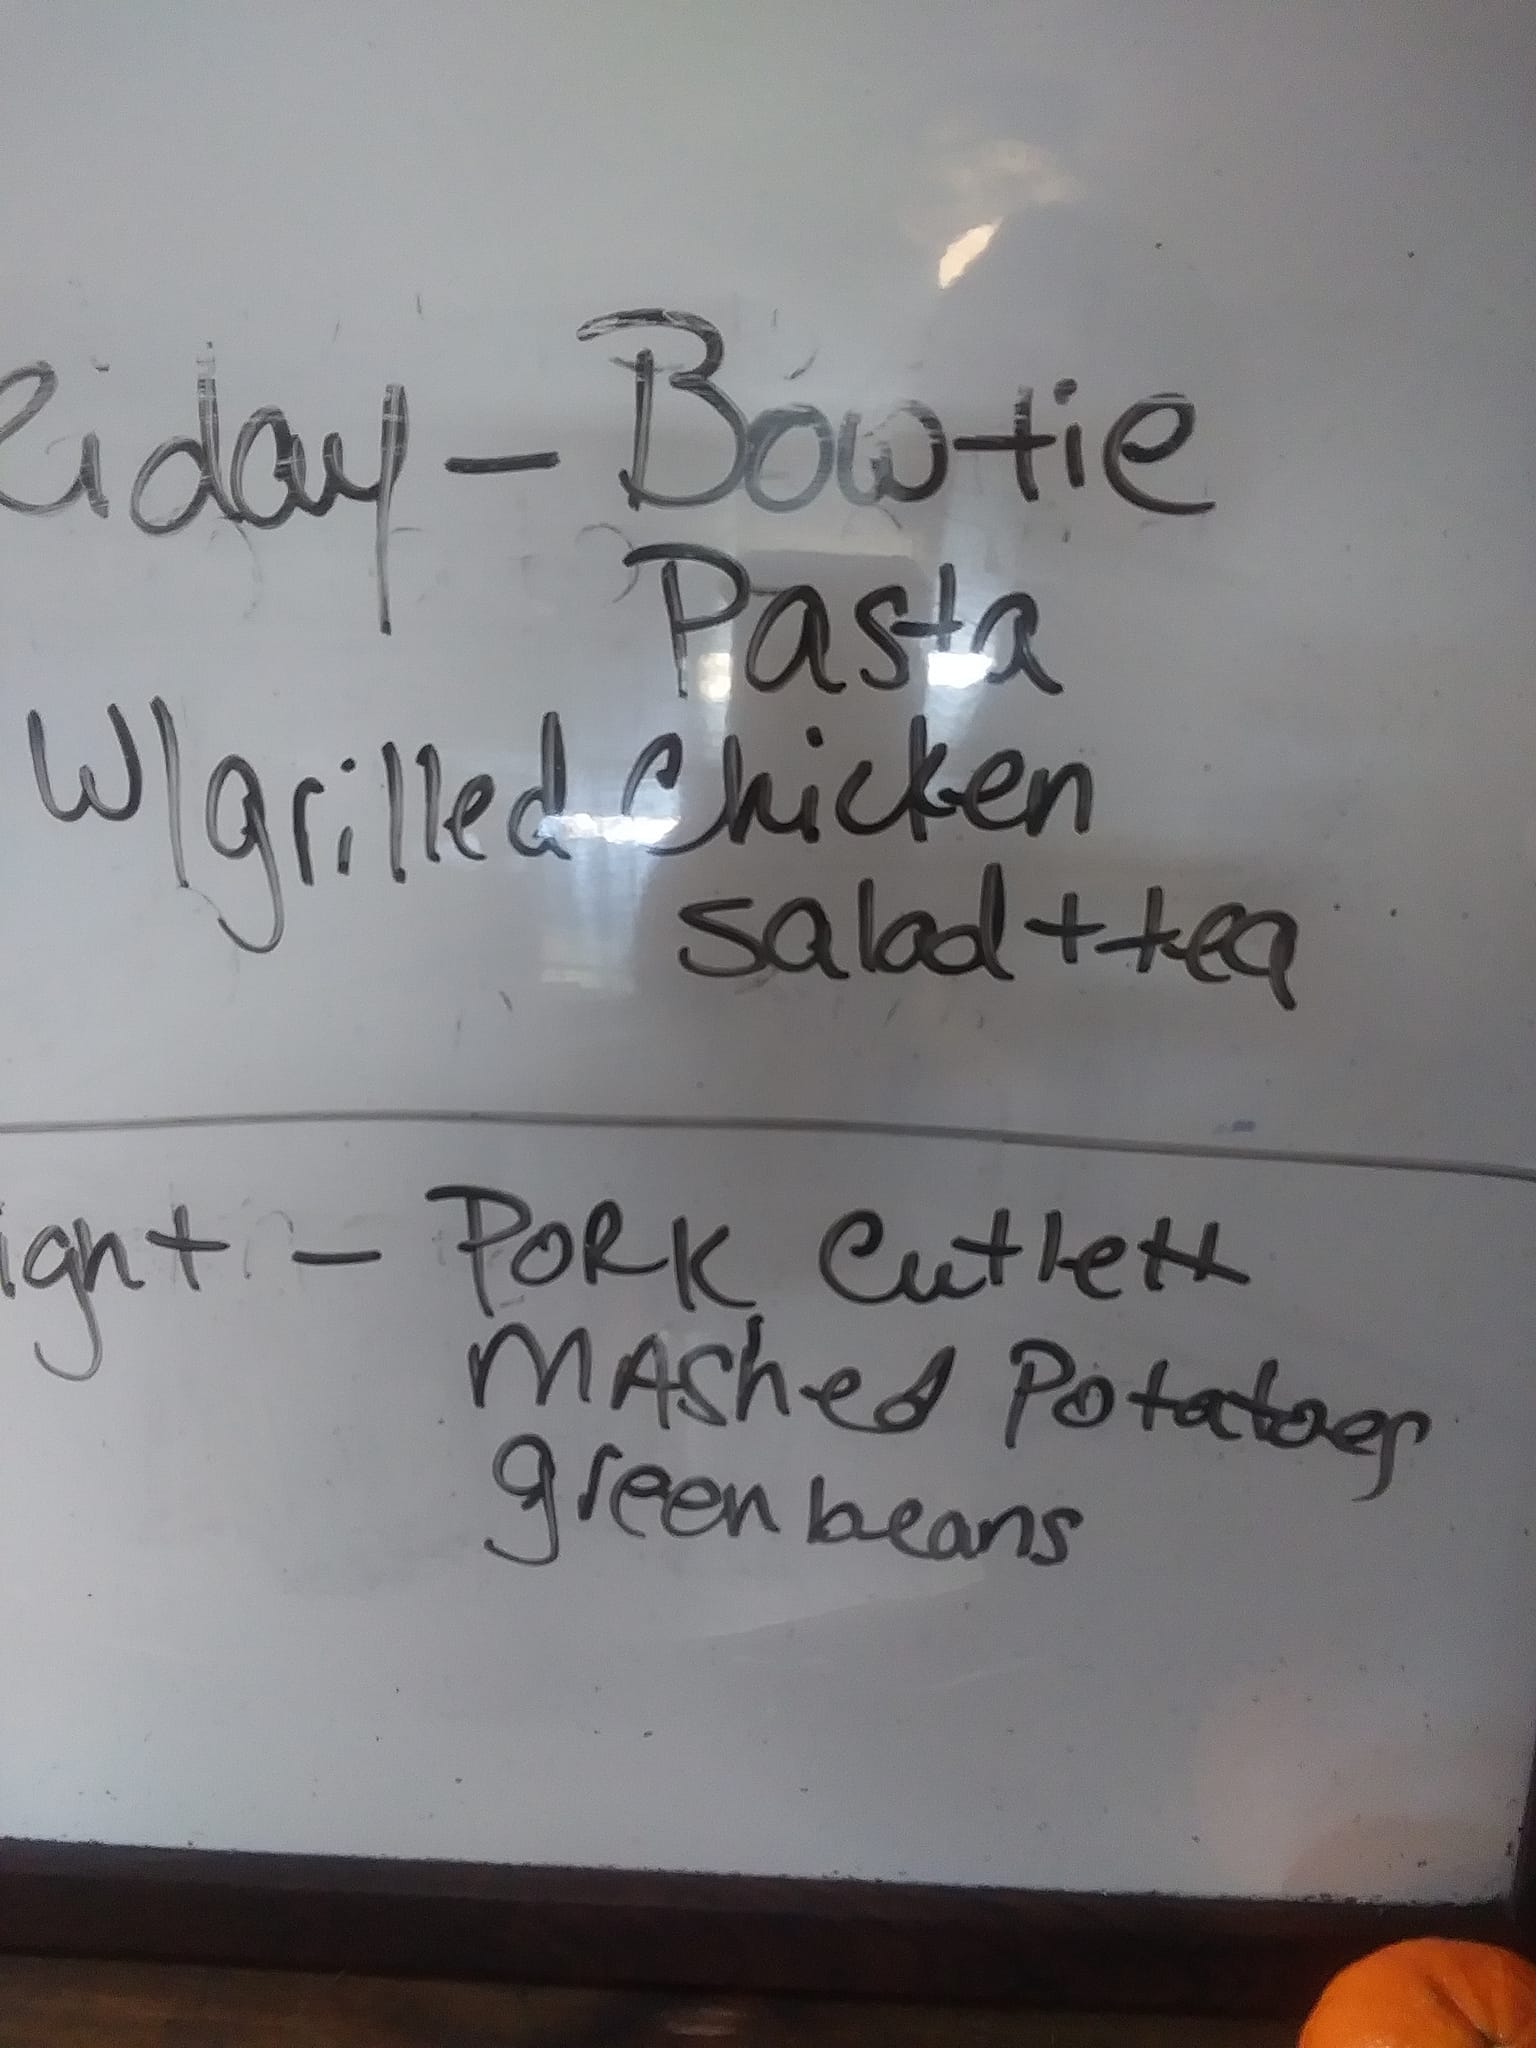 riday - Bowtie
Pasta
W/grilled Chicken
salad + tea
ight - PORK Cutlett
MAShed Potatoes
green beans